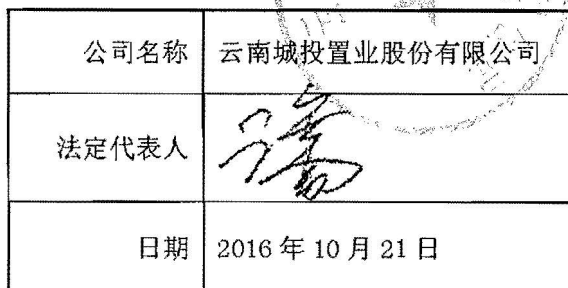 公司名称 云南城投置业股份有限公司
法定代表人
日期 2016年10月21日